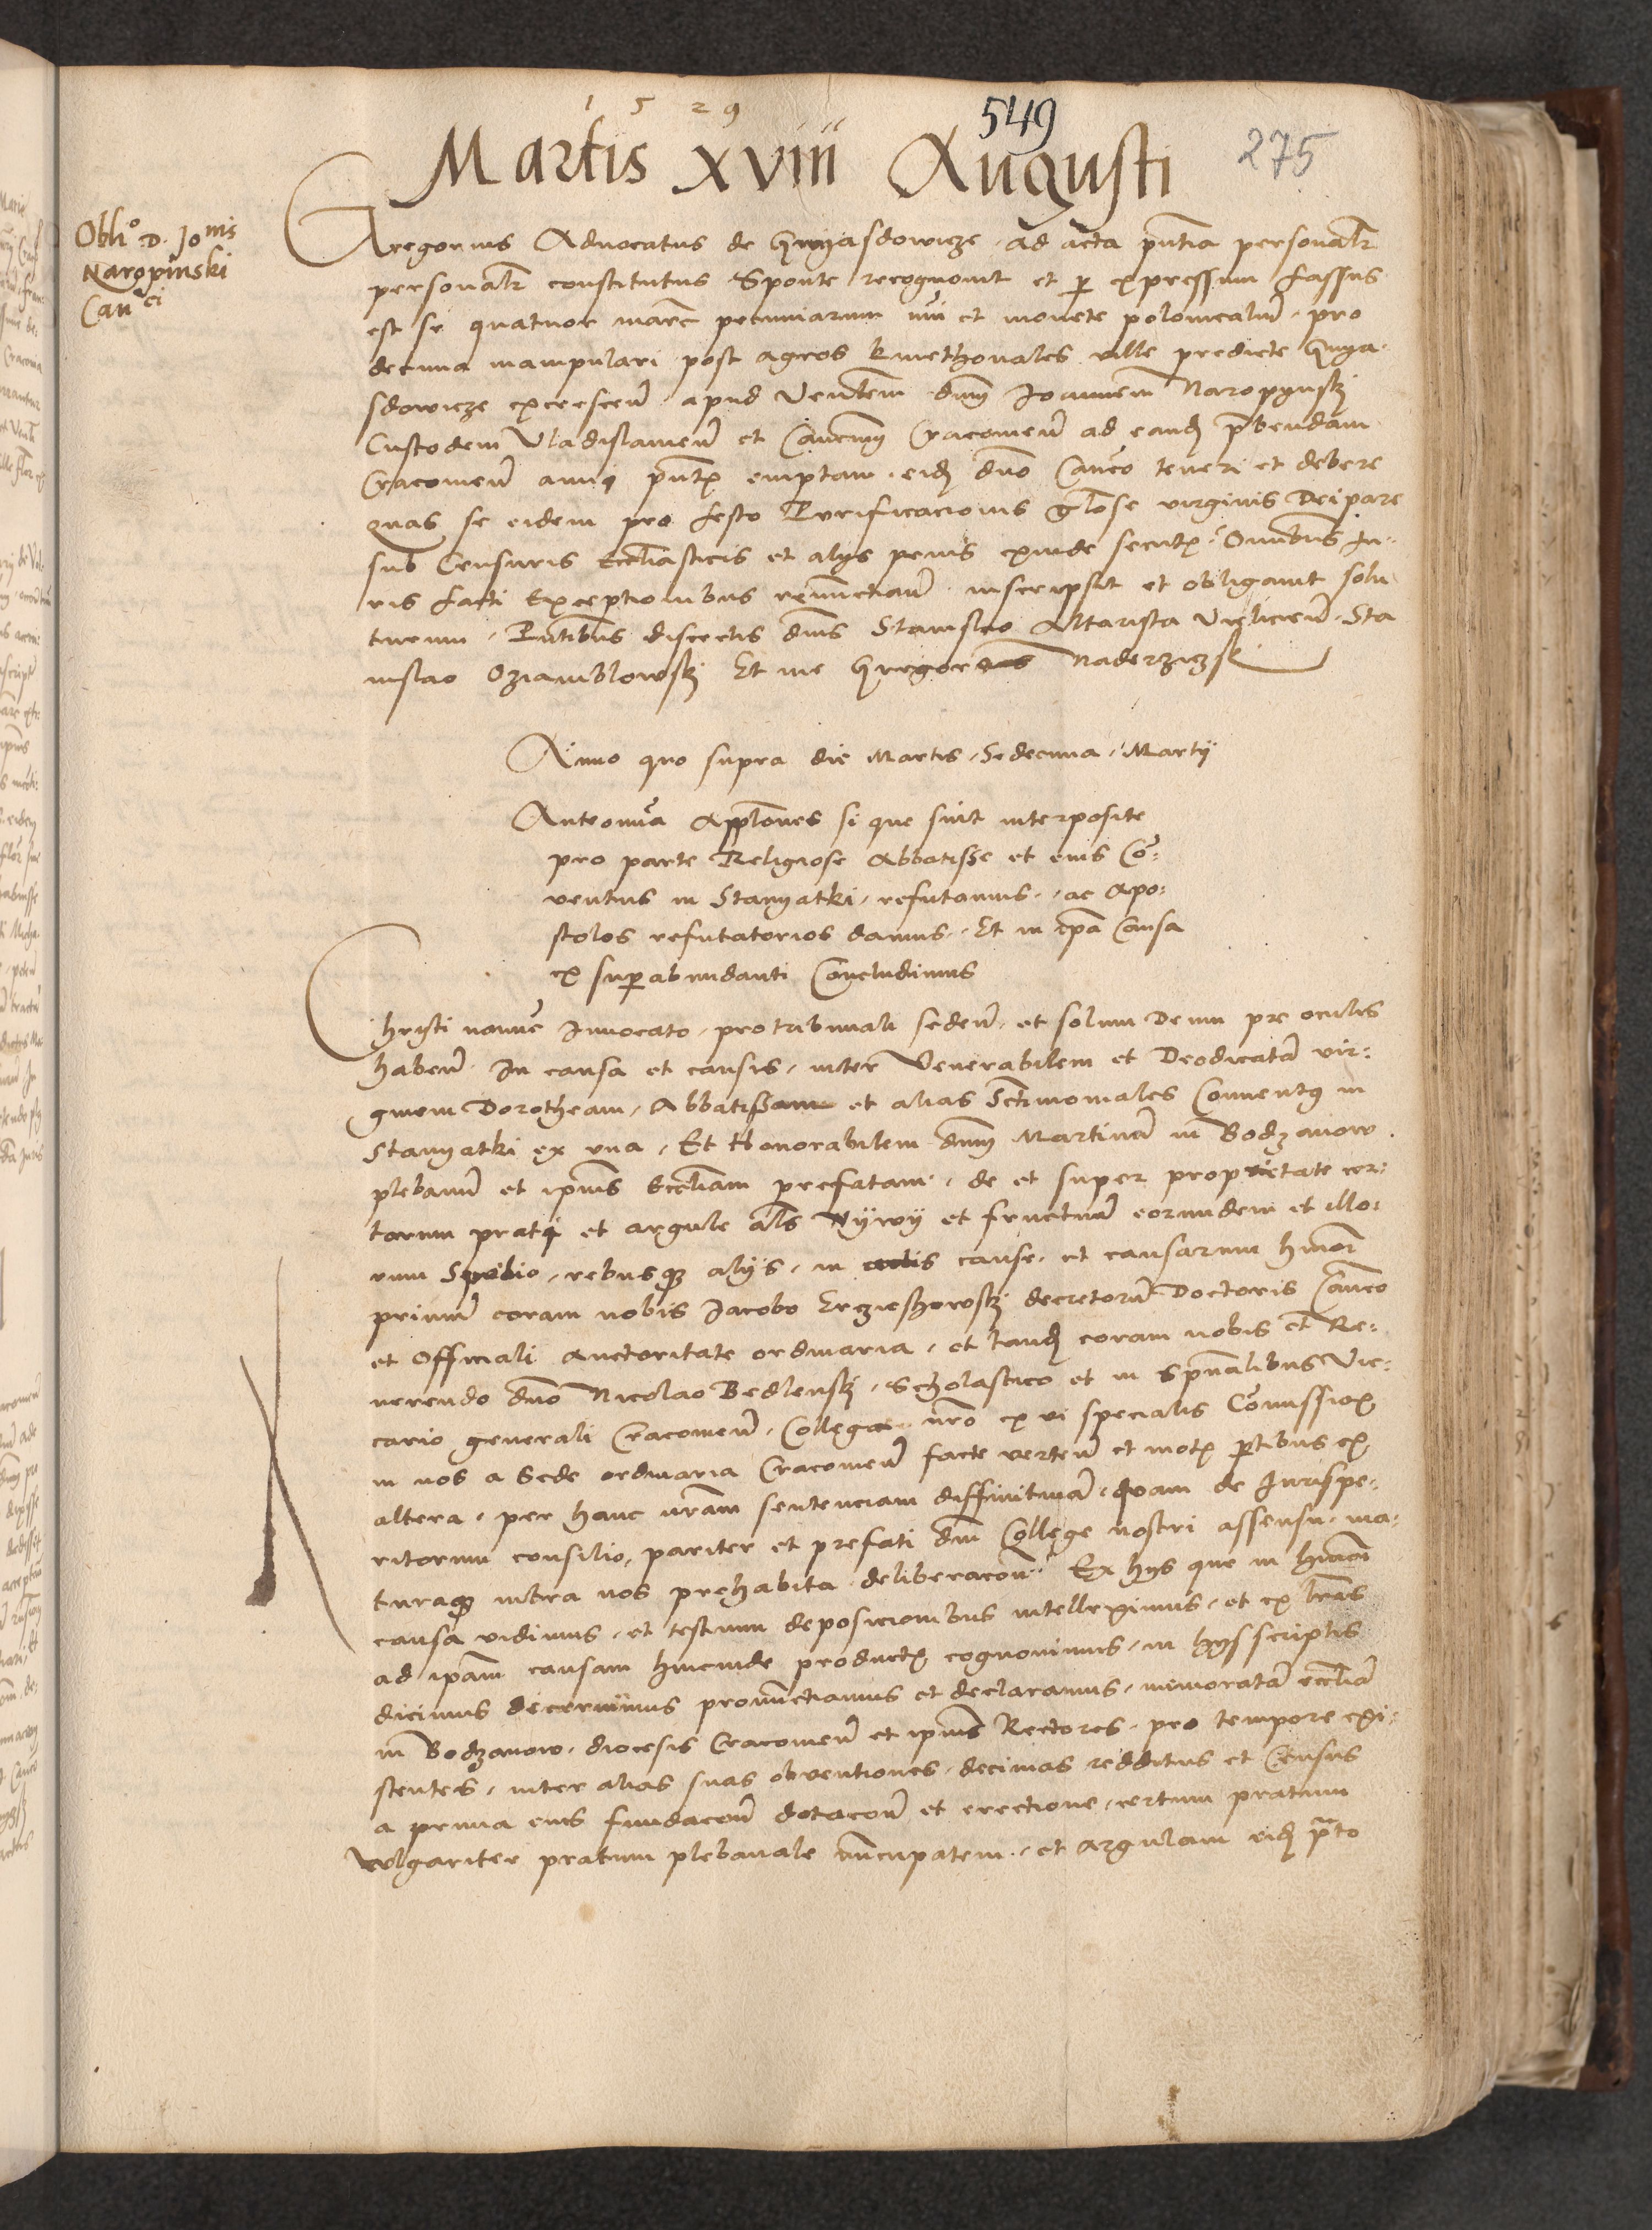 1 5 2 9
549
275
Martis xviii Augusti
Obli° D. Jo nis
Naropinski
Can ci
Gregorius Advocatus de Gnyasdowicze ad acta pntia personalr
personalr constitutus Sponte recognovit et p expressum fassus
est se quatuor marc pecuniarum nui et monete polonicaliu pro
decima manipulari post agros kmethonales ville predicte Gnya-
sdowicze excrescen apud Venblem dnm Joannem Naropynskj
Custodem Vladislavien et Canonicu Cracovien ad eand pbendam
Cracovien anni pntis emptam eid dno Canco teneri et debere
quas se eidem pro festo Purificacionis glose virginis Deipare
sub Censuris eccliasticis et alys penis exinde secutis Omnibus Ju-
ris facti Exceptionibus renunctian inscripsit et obligavit solu
turum Pntibus discretis dnis Stanislao Altarista Vielicien Sta
nislao Oziamblowskj Et me Gregorio Naderziczsk
Anno quo supra die Martis Sedecima Martij
Anteomia Applones si que sint interposite
pro parte Religiose Abbatisse et eius Co-
ventus in Stanyatki refutamus ac Apo-
stolos refutatorios damus Et in cpa Causa
ex supabundanti Concludimus
Christi nomie Invocato pro tribunali seden et solum Deum pre oculis
haben In causa et causis inter Venerabilem et Deodicata vir-
ginem Dorotheam Abbatissam et alias Sctimoniales Conventus in
Stanyatki ex una Et Honorabilem dnm Martinu in Bodzanow
plebanu et ipius eccliam prefatam de et super proprietate cer-
torum prati et argule als Nywy et fructuu eorundem et illo-
rum Spolio rebusq alijs in actis cause et causarum hmoi
primu coram nobis Jacobo Erzieshowskj decretoru Doctoris Canco
et Officiali Auctoritate ordinaria et tand coram nobis et Re-
verendo dno Nicolao Bedlenskj Scholastico et in spualibus Vic-
cario generali Cracovien Collega nro ex vi specialis Comissiois
in nos a Sede ordinaria Cracovien facte verten et motis ptibus ex
altera per hanc nram sentenciam diffinitiva quam de Jurispe-
ritorum consilio pariter et prefati dni College nostri assensu ma-
turaq intra nos prehabita deliberacone Ex hys que in hmoi
causa vidimus et testium deposicionibus intelleximus et ex lris
ad ipam causam hincinde productis cognovimus in hys scriptis
dicimus decernimus pronunctiamus et declaramus memorata eccliam
in Bodzanow diocesis Cracovien et ipius Rectores pro tempore exi-
stentes inter alias suas obventiones decimas redditus et Census
a prima eius fundacone dotacone et erectione certum pratum
volgariter pratum plebanale nuncupatum et argulam eid prato